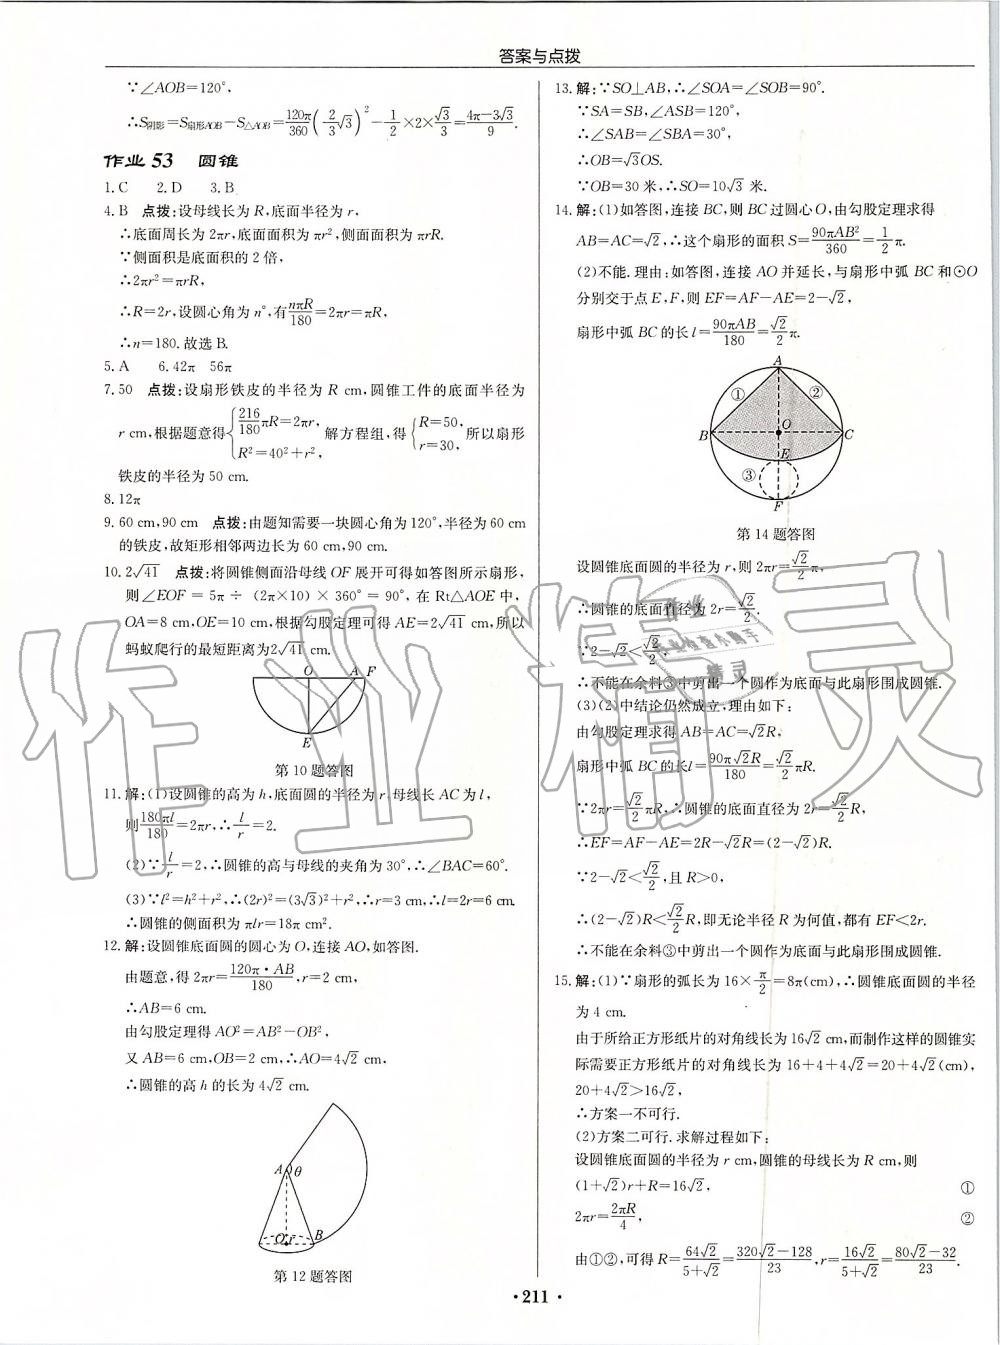 答案与点拨
∵∠AOB=120°,
∴S阴影=S扇形AOB-S△AOB=120π/360(2/3√3)²-1/2×2×√3/3=(4π-3√3)/9.
作业53 圆锥
1.C 2.D 3.B
4.B 点拨:设母线长为R,底面半径为r,
∴底面周长为2πr,底面面积为πr²,侧面面积为πrR.
∵侧面积是底面积的2倍,
∴2πr²=πrR,
∴R=2r,设圆心角为n°,有nπR/180=2πr=πR,
∴n=180.故选B.
5.A 6.42π 56π
7.50 点拨:设扇形铁皮的半径为R cm,圆锥工件的底面半径为
r cm,根据题意得{216/180πR=2πr, R²=40²+r², 解方程组,得{R=50, r=30, 所以扇形
铁皮的半径为50 cm.
8.12π
9.60 cm,90 cm 点拨:由题知需要一块圆心角为120°,半径为60 cm
的铁皮,故矩形相邻两边长为60 cm,90 cm.
10.2√41 点拨:将圆锥侧面沿母线OF展开可得如答图所示扇形,
则∠EOF=5π÷(2π×10)×360°=90°,在Rt△AOE中,
OA=8 cm,OE=10 cm,根据勾股定理可得AE=2√41 cm,所以
蚂蚁爬行的最短距离为2√41 cm.
O A F
E
第10题答图
11.解:(1)设圆锥的高为h,底面圆的半径为r,母线长AC为l,
则180πl/180=2πr,∴l/r=2.
(2)∵l/r=2,∴圆锥的高与母线的夹角为30°,∴∠BAC=60°.
(3)∵l²=h²+r²,∴(2r)²=(3√3)²+r²,∴r=3 cm,∴l=2r=6 cm.
∴圆锥的侧面积为πlr=18π cm².
12.解:设圆锥底面圆的圆心为O,连接AO,如答图.
由题意,得2πr=120π·AB/180,r=2 cm,
∴AB=6 cm.
由勾股定理得AO²=AB²-OB²,
又AB=6 cm,OB=2 cm,∴AO=4√2 cm.
∴圆锥的高h的长为4√2 cm.
A θ
O r B
第12题答图
13.解:∵SO⊥AB,∴∠SOA=∠SOB=90°.
∵SA=SB,∠ASB=120°,
∴∠SAB=∠SBA=30°,
∴OB=√3OS.
∵OB=30米,∴SO=10√3米.
14.解:(1)如答图,连接BC,则BC过圆心O,由勾股定理求得
AB=AC=√2,∴这个扇形的面积S=90πAB²/360=1/2π.
(2)不能.理由:如答图,连接AO并延长,与扇形中弧BC和⊙O
分别交于点E,F,则EF=AF-AE=2-√2,
扇形中弧BC的长l=90πAB/180=√2/2π.
A
① ②
B O C
E
③
F
第14题答图
设圆锥底面圆的半径为r,则2πr=√2/2π,
∴圆锥的底面直径为2r=√2/2.
∵2-√2<√2/2,
∴不能在余料③中剪出一个圆作为底面与此扇形围成圆锥.
(3)(2)中结论仍然成立,理由如下:
由勾股定理求得AB=AC=√2R,
扇形中弧BC的长l=90π√2R/180=√2/2πR.
∵2πr=√2/2πR,∴圆锥的底面直径为2r=√2/2R,
∴EF=AF-AE=2R-√2R=(2-√2)R.
∵2-√2<√2/2,且R>0,
∴(2-√2)R<√2/2R,即无论半径R为何值,都有EF<2r.
∴不能在余料③中剪出一个圆作为底面与此扇形围成圆锥.
15.解:(1)∵扇形的弧长为16×π/2=8π(cm),∴圆锥底面圆的半径
为4 cm.
由于所给正方形纸片的对角线长为16√2 cm,而制作这样的圆锥实
际需要正方形纸片的对角线长为16+4+4√2=20+4√2(cm),
20+4√2>16√2,
∴方案一不可行.
(2)方案二可行.求解过程如下:
设圆锥底面圆的半径为r cm,圆锥的母线长为R cm,则
(1+√2)r+R=16√2, ①
2πr=2πR/4, ②
由①②,可得R=64√2/(5+√2)=(320√2-128)/23,r=16√2/(5+√2)=(80√2-32)/23.
·211·
作业精灵